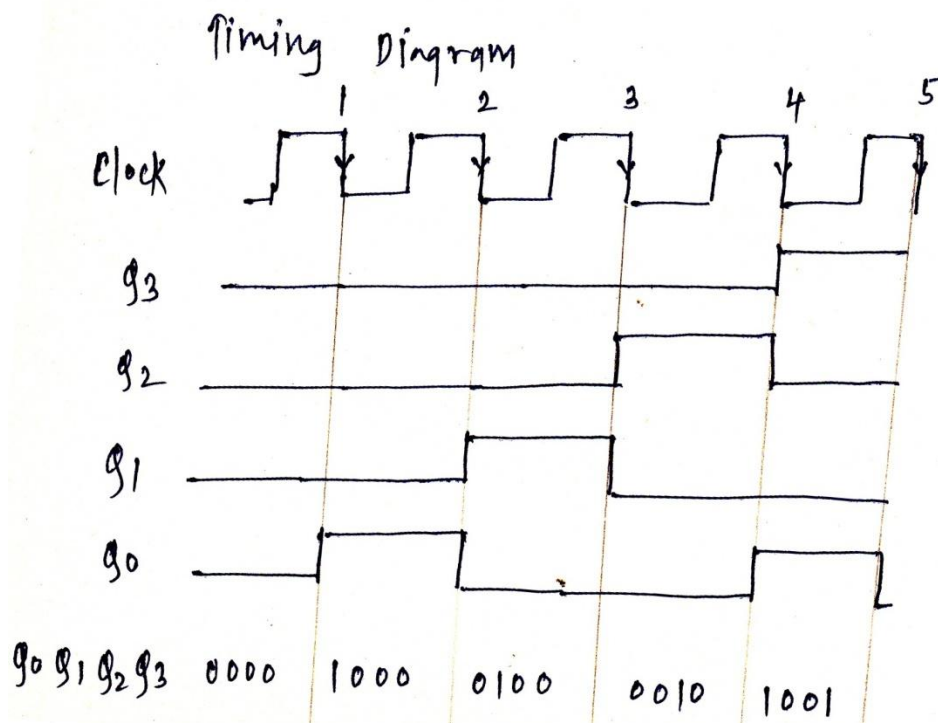 Timing Diagram
1 2 3 4 5
Clock
q3
q2
q1
q0
q0 q1 q2 q3 0000 1000 0100 0010 1001